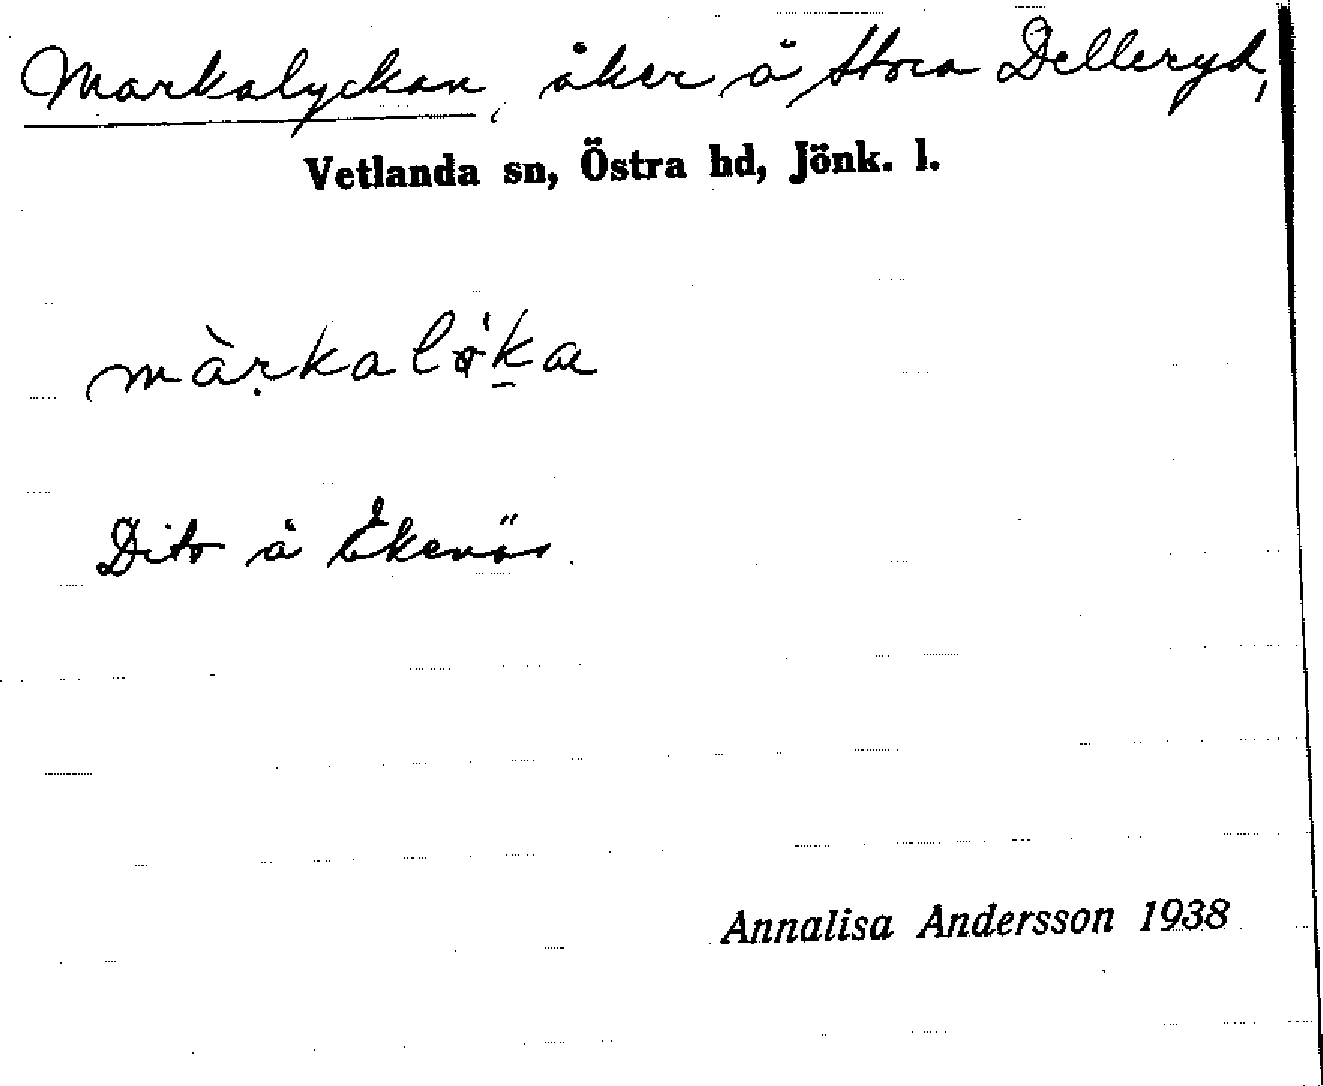 Markalyckan, åker å Stora Delleryd,
Vetlanda sn, Östra hd, Jönk. l.
màṛkalö́ḵa
Dito å Ekenäs.
Annalisa Andersson 1938